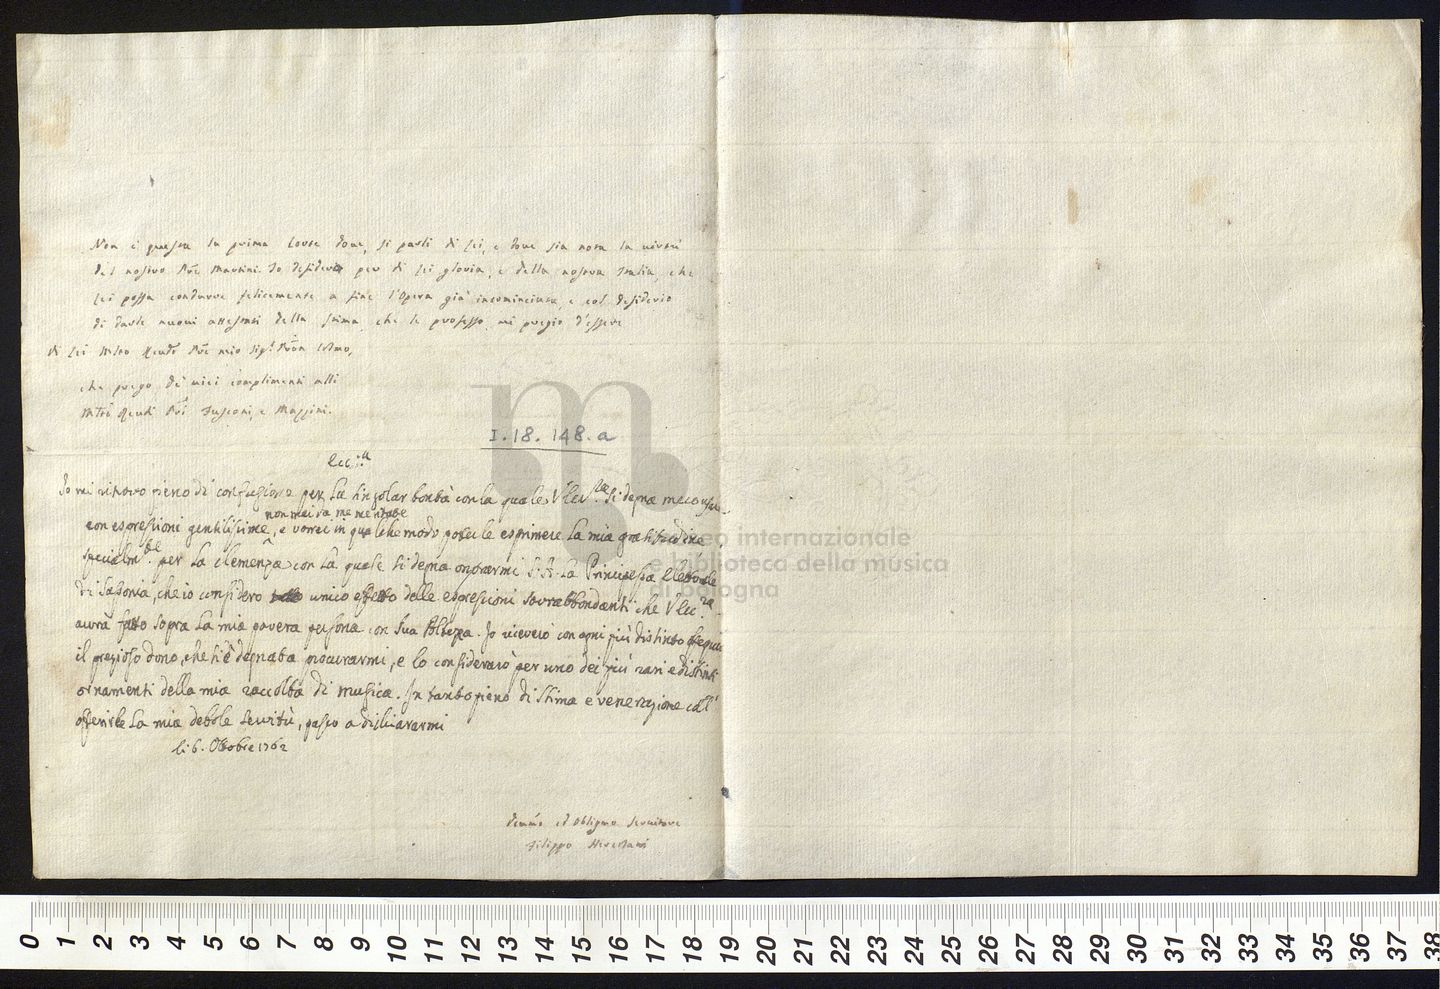 Non è questa la prima Corte dove si parli di Lei, e dove sia nota la virtù
del nostro Pre Martini. Io desidero per di Lei gloria, e della nostra Italia, che
Lei possa condurre felicemente a fine l'Opera già incominciata, e col desiderio
di darle nuovi attestati della stima, che le professo, mi pregio d'essere
di Lei Mtro Revdo Pre mio Sigr Pron Colmo,
che prego de' miei complimenti alli
Mtri Revdi Pri Fusconi, e Mazzini.
I. 18. 148. a
Ecc:
Io mi ritrovo pieno di confusione per la singolar bontà con la quale V Ecc.za si degna meco
non mai da me meritate
con espressioni gentilissime, e vorrei in qualche modo poterle esprimere la mia gratitudine
specialm.te per la clemenza con la quale si degna onorarmi S. A. la Principessa Elettorale
di Sassonia, che io considero unico effetto delle espressioni sovrabbondanti che V Ecc.za
avrà fatto sopra la mia povera persona con Sua Altezza. Io riceverò con ogni più distinto
il prezioso dono, che si è degnata procurarmi, e lo considerarò per uno dei più rari e distinti
ornamenti della mia raccolta di musica. In tanto pieno di stima e venerazione coll'
offerirle la mia debole servitù, passo a dichiararmi
li 6. Ottobre 1762
museo internazionale
e biblioteca della musica
di bologna
Demo ed Obligmo Servitore
Filippo Hercolani
0 1 2 3 4 5 6 7 8 9 10 11 12 13 14 15 16 17 18 19 20 21 22 23 24 25 26 27 28 29 30 31 32 33 34 35 36 37 38